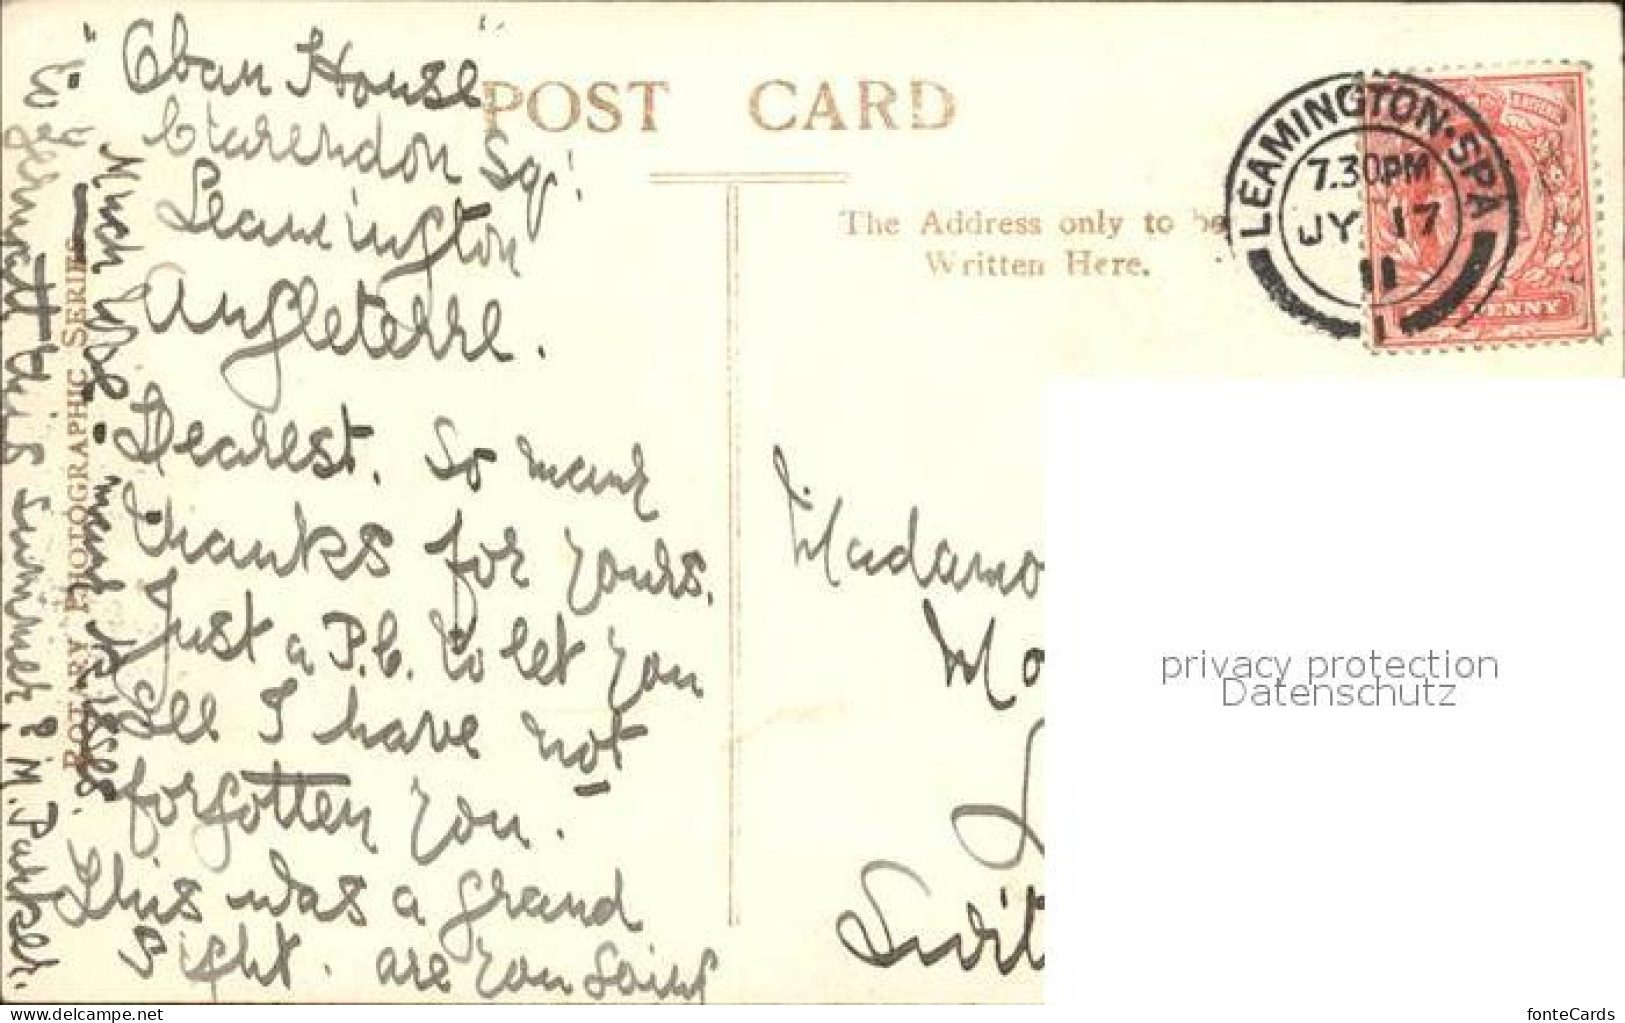 "Oban House"
Clarendon Sq!
Leamington
Angleterre.
Dearest. So many
thanks for yours.
Just a P.C. to let you
see I have not
forgotten you.
This was a grand
sight. are you going
this summer? M. Parker.
Much love
many kisses
ROTARY PHOTOGRAPHIC SERIES
POST CARD
The Address only to be
Written Here.
LEAMINGTON·SPA
7.30PM
JY 17
11
1
PENNY
Madamo
Mo
Swit
privacy protection
Datenschutz
www.delcampe.net
fonteCards